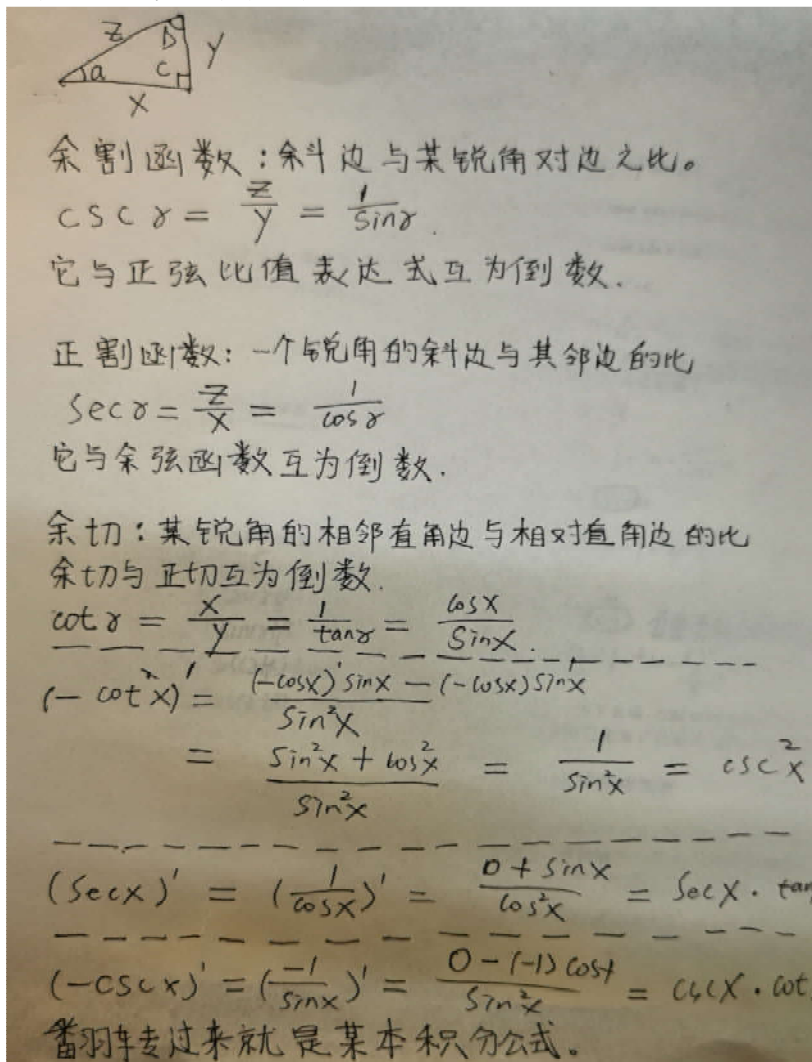 z
b
y
a
c
x
余割函数:斜边与某锐角对边之比。
csc γ = z/y = 1/sinγ.
它与正弦比值表达式互为倒数.
正割函数:一个锐角的斜边与其邻边的比
Sec γ = z/x = 1/cosγ
它与余弦函数互为倒数.
余切:某锐角的相邻直角边与相对直角边的比
余切与正切互为倒数.
cot γ = x/y = 1/tanγ = cosx/sinx.
(- cot²x)' = ((-cosx)' sinx - (-cosx) sin'x)/sin²x
= (sin²x + cos²x)/sin²x = 1/sin²x = csc²x
(Secx)' = (1/cosx)' = (0 + sinx)/cos²x = Secx · tan
(-cscx)' = (-1/sinx)' = (0-(-1)cosx)/sin²x = cscx · cot
翻转过来就是基本积分公式。